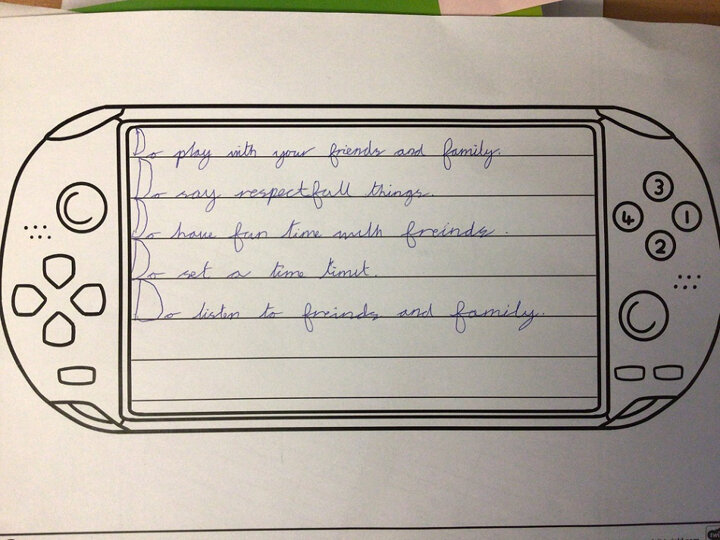 Do play with your friends and family.
Do say respectfull things.
Do have fun time with freinds.
Do set a time limit.
Do listen to freinds and family.
3
4
1
2